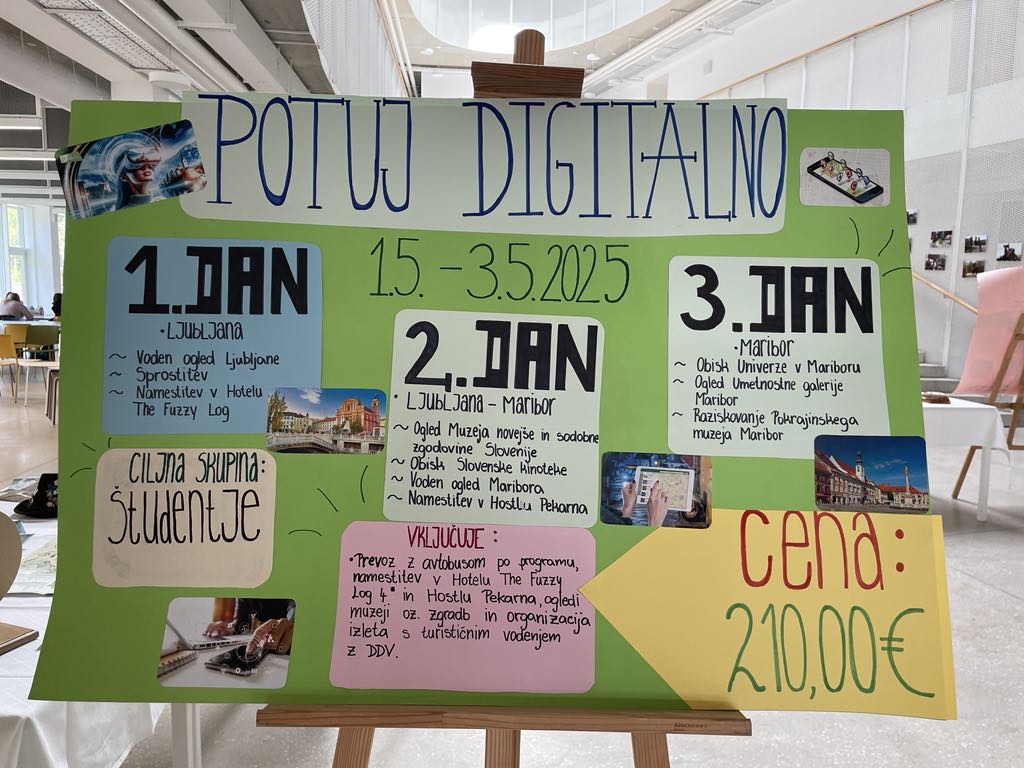 POTUJ DIGITALNO
1.5. – 3.5.2025
1. DAN
• LJUBLJANA
~ Voden ogled Ljubljane
~ Sprostitev
~ Namestitev v Hotelu
The Fuzzy Log
2. DAN
• LJUBLJANA – MARIBOR
~ Ogled Muzeja novejše in sodobne
zgodovine Slovenije
~ Obisk Slovenske kinoteke
~ Voden ogled Maribora
~ Namestitev v Hostlu Pekarna
3. DAN
• MARIBOR
~ Obisk Univerze v Mariboru
~ Ogled Umetnostne galerije
Maribor
~ Raziskovanje Pokrajinskega
muzeja Maribor
CILJNA SKUPINA:
ŠTUDENTJE
VKLJUČUJE:
• Prevoz z avtobusom po programu,
namestitev v Hotelu The Fuzzy
Log 4* in Hostlu Pekarna, ogledi
muzeji oz. zgradb in organizacija
izleta s turističnim vodenjem
z DDV.
cena:
210,00€